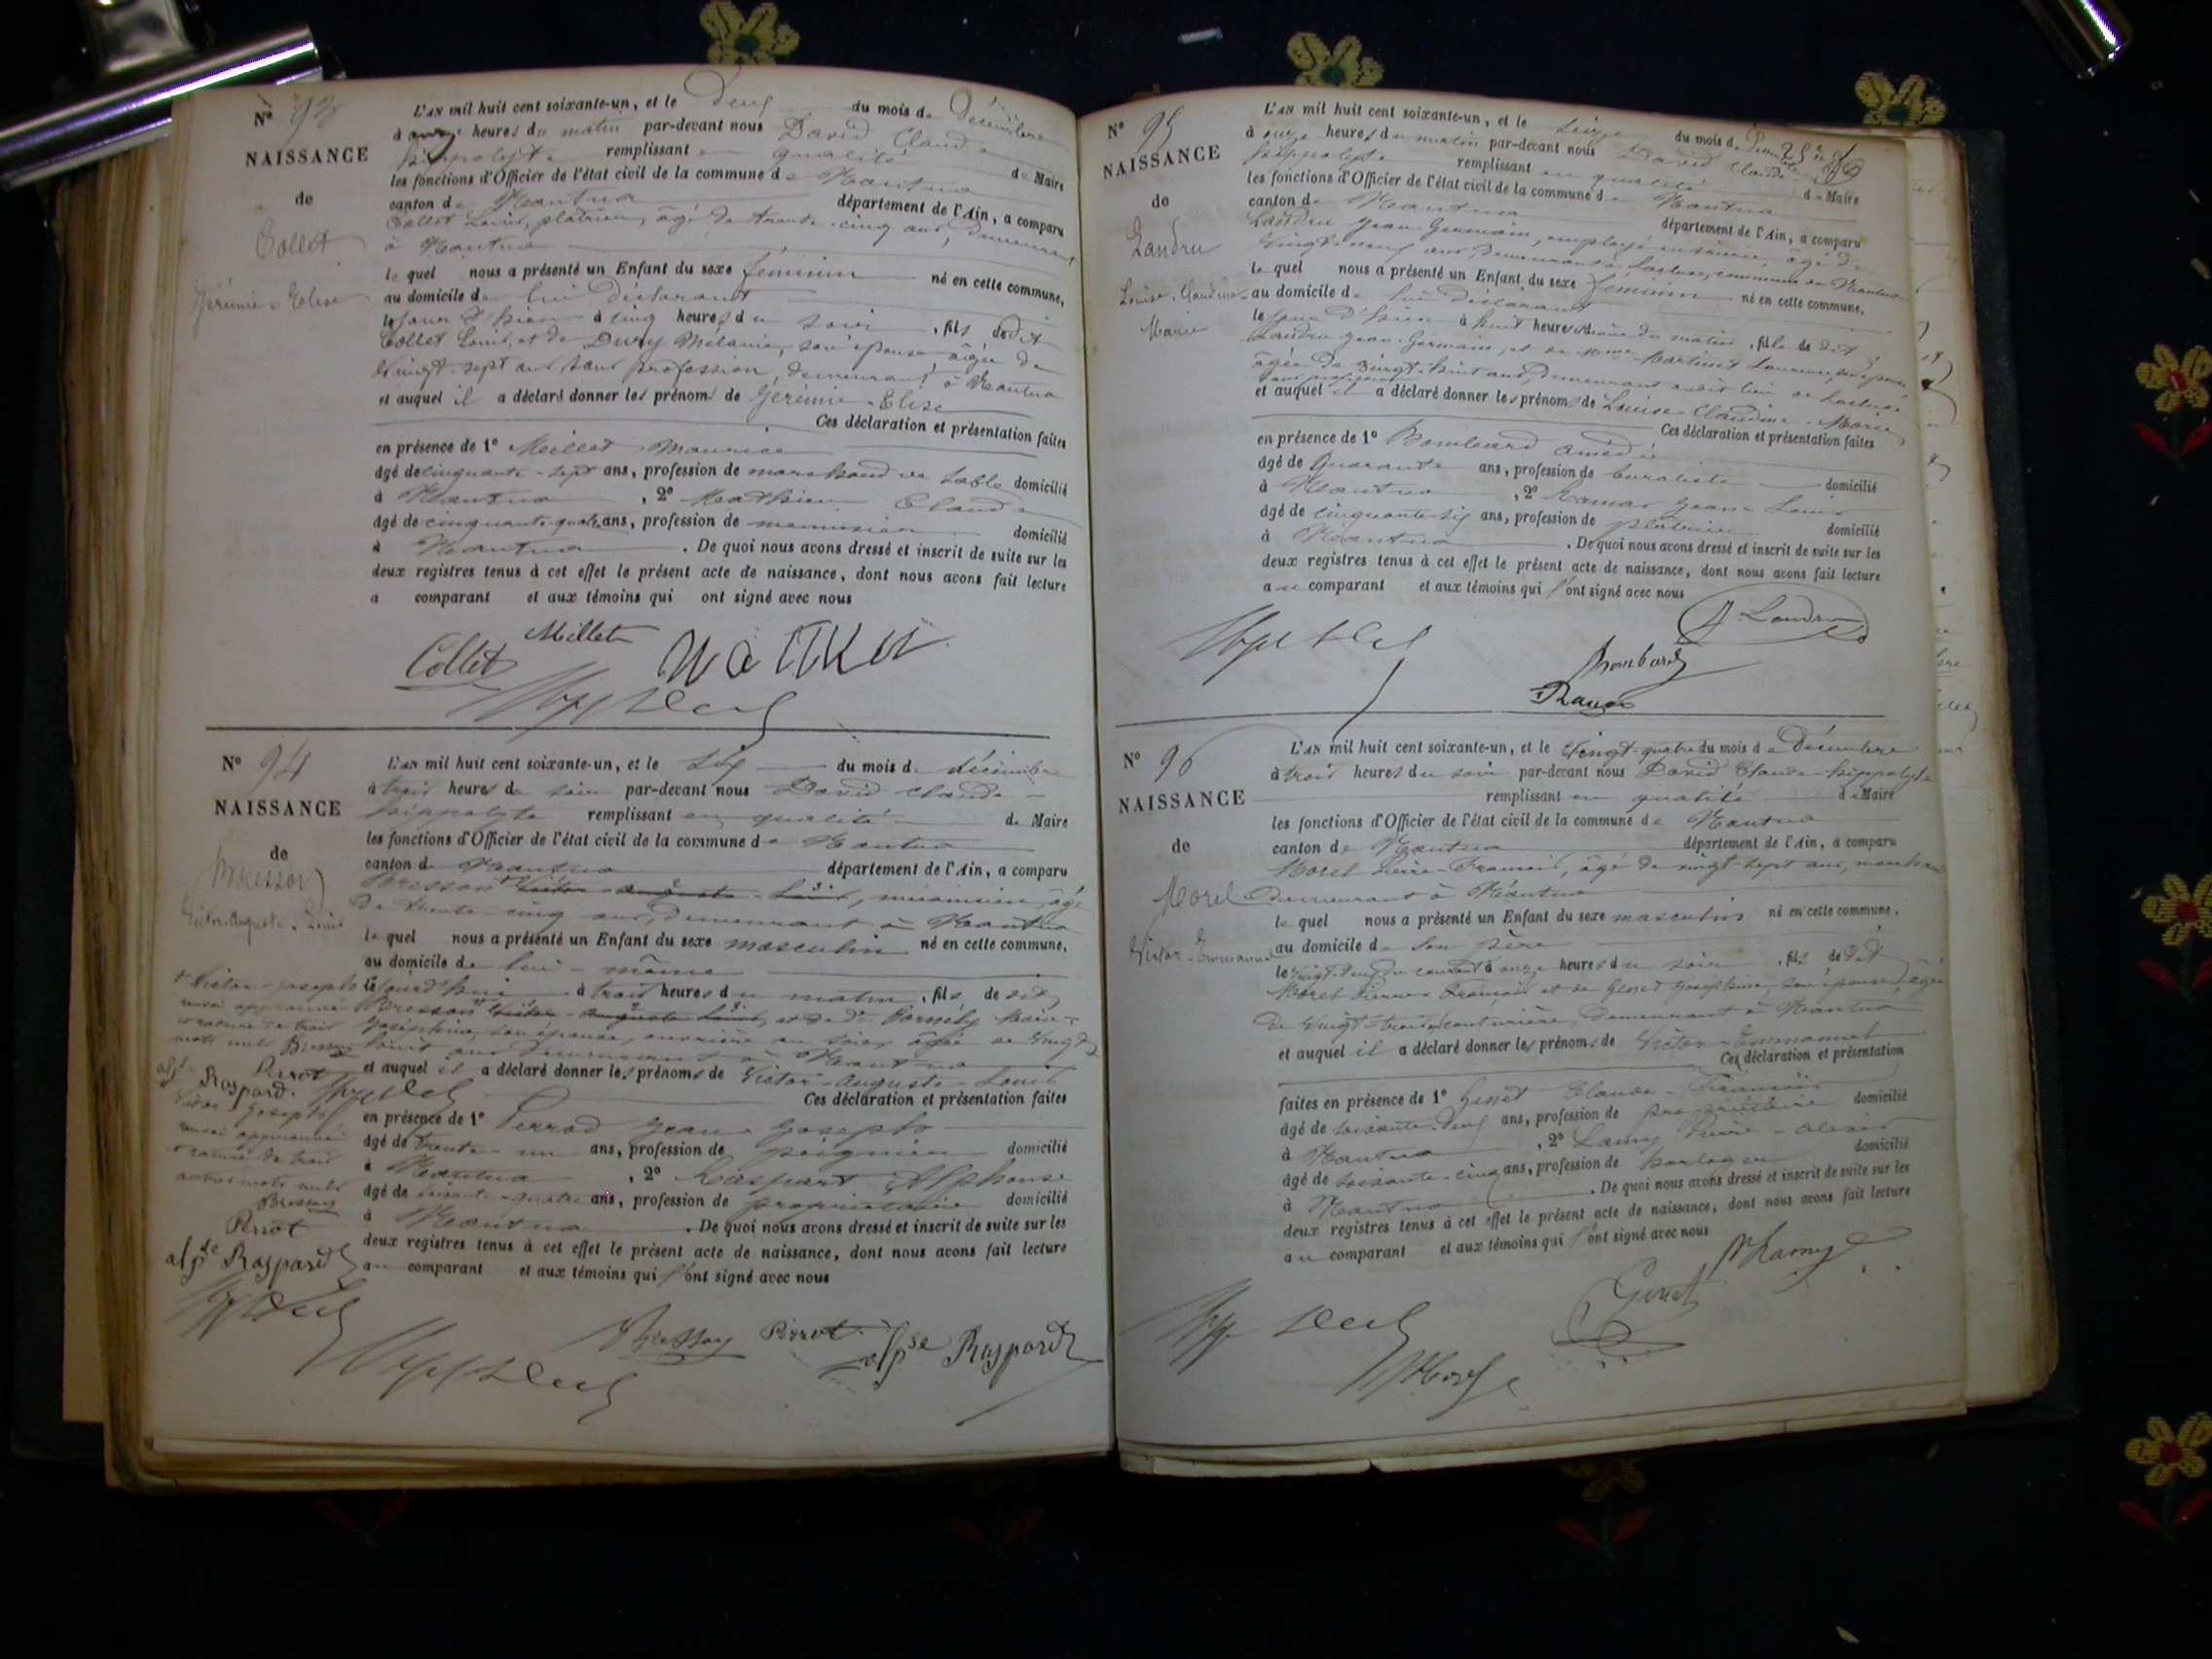 N° 93
NAISSANCE
de
Collet
Jérémie-Elise
L'AN mil huit cent soixante-un, et le deux du mois de Décembre
à onze heures du matin par-devant nous David Claude
hippolyte remplissant en qualité de Maire
les fonctions d'Officier de l'état civil de la commune de Nantua
canton de Nantua département de l'Ain, a comparu
Collet Louis, plâtrier, âgé de trente-cinq ans, demeurant
à Nantua
le quel nous a présenté un Enfant du sexe féminin né en cette commune,
au domicile de lui déclarant
le jour d'hier à cinq heures du soir, fils dudit
Collet Louis, et de Dury Mélanie, son épouse âgée de
vingt-sept ans sans profession, demeurant à Nantua
et auquel il a déclaré donner les prénoms de Jérémie-Elise
Ces déclaration et présentation faites
en présence de 1° Meillet Maurice
âgé de cinquante-sept ans, profession de marchand de sable domicilié
à Nantua, 2° Mathieu Claude
âgé de cinquante-quatre ans, profession de menuisier domicilié
à Nantua. De quoi nous avons dressé et inscrit de suite sur les
deux registres tenus à cet effet le présent acte de naissance, dont nous avons fait lecture
a comparant et aux témoins qui ont signé avec nous
Millet
Collet
N° 94
NAISSANCE
de
Bresson
Victor-Auguste-Louis
L'AN mil huit cent soixante-un, et le six du mois de décembre
à trois heures du soir par-devant nous David Claude
hippolyte remplissant en qualité de Maire
les fonctions d'Officier de l'état civil de la commune de Nantua
canton de Nantua département de l'Ain, a comparu
Bresson Victor-Auguste-Louis, mécanicien, âgé
de trente-cinq ans, demeurant à Nantua
le quel nous a présenté un Enfant du sexe masculin né en cette commune,
au domicile de lui-même
à trois heures du matin, fils de dit
Bresson Victor-Auguste-Louis, et de
Joséphine, son épouse, ouvrière en soie, âgée de vingt
huit ans demeurant à Nantua
et auquel il a déclaré donner les prénoms de Victor-Auguste-Louis
Ces déclaration et présentation faites
en présence de 1° Perrod Jean-Joseph
âgé de trente-un ans, profession de peignier domicilié
à Nantua, 2° Raspart Alphonse
âgé de soixante-quatre ans, profession de propriétaire domicilié
à Nantua. De quoi nous avons dressé et inscrit de suite sur les
deux registres tenus à cet effet le présent acte de naissance, dont nous avons fait lecture
au comparant et aux témoins qui l'ont signé avec nous
+ Victor-Joseph
renvoi approuvé
et rature de trois
mots nuls Bresson
Perrot
Raspard.
Victor Joseph
renvoi approuvé
et rature de trois
autres mots nuls
Bresson
Perrot
alpse Raspard
Bresson Perrot alpse Raspard
N° 95
NAISSANCE
de
Landru
Louise-Claudine-
Marie
L'AN mil huit cent soixante-un, et le seize du mois de Décembre
à onze heures du matin par-devant nous David Claude
hippolyte remplissant en qualité de Maire
les fonctions d'Officier de l'état civil de la commune de Nantua
canton de Nantua département de l'Ain, a comparu
Landru Jean-Germain, employé, âgé de
vingt-neuf ans, demeurant à commune de Nantua
le quel nous a présenté un Enfant du sexe féminin né en cette commune,
au domicile de lui déclarant
le jour d'hier à huit heures du matin, fille de dit
Landru Jean-Germain, et de Martinet Laurence, son épouse,
âgée de vingt-huit ans, demeurant avec lui
sans profession
et auquel il a déclaré donner les prénoms de Louise-Claudine-Marie
Ces déclaration et présentation faites
en présence de 1° Bombard Amédée
âgé de quarante ans, profession de buraliste domicilié
à Nantua, 2° Jean-Louis
âgé de cinquante-six ans, profession de plâtrier domicilié
à Nantua. De quoi nous avons dressé et inscrit de suite sur les
deux registres tenus à cet effet le présent acte de naissance, dont nous avons fait lecture
au comparant et aux témoins qui l'ont signé avec nous
Landru
Bombard
N° 96
NAISSANCE
de
Morel
Victor-Emmanuel
L'AN mil huit cent soixante-un, et le vingt-quatre du mois de Décembre
à trois heures du soir par-devant nous David Claude-hippolyte
remplissant en qualité de Maire
les fonctions d'Officier de l'état civil de la commune de Nantua
canton de Nantua département de l'Ain, a comparu
Morel Pierre-François, âgé de vingt-sept ans, marchand
demeurant à Nantua
le quel nous a présenté un Enfant du sexe masculin né en cette commune,
au domicile de son père
le vingt-deux du courant à onze heures du soir, fils de dit
Morel Pierre-François et de Genet Joséphine, son épouse, âgée
de vingt-trois couturière, demeurant à Nantua
et auquel il a déclaré donner les prénoms de Victor-Emmanuel
Ces déclaration et présentation
faites en présence de 1° Genet Claude-François
âgé de soixante-deux ans, profession de propriétaire domicilié
à Nantua, 2° Lamy Pierre-Alexis
âgé de soixante-cinq ans, profession de horloger domicilié
à Nantua. De quoi nous avons dressé et inscrit de suite sur les
deux registres tenus à cet effet le présent acte de naissance, dont nous avons fait lecture
au comparant et aux témoins qui l'ont signé avec nous
Lamy
Genet
Morel